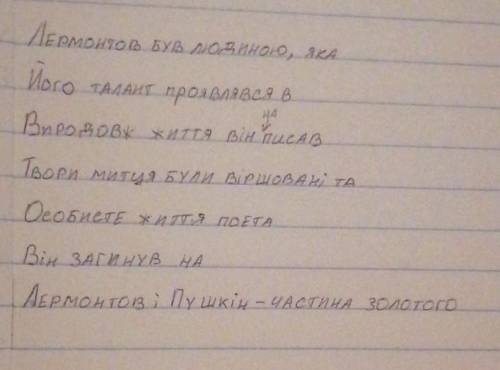 Лермонтов був людиною, яка
Його талант проявлявся в
Впродовж життя він написав
Твори митця були віршовані та
Особисте життя поета
Він загинув на
Лермонтов і Пушкін - частина золотого